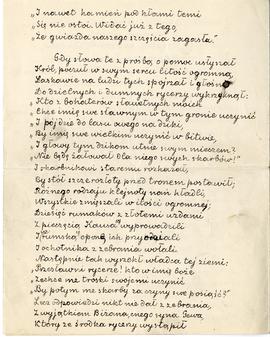 „I nawet kamień pod kłami temi
„Się nie ostoi. Widać już z tego,
„Że gwiazda naszego szczęścia zagasła."
Gdy słowa te z prośbą o pomoc usłyszał
Król, poczuł w swym sercu litość ogromną,
Łaskawie na ludzi tych spojrzał i głośno
Do dzielnych i dumnych rycerzy wykrzyknął:
„Kto z bohaterów sławetnych moich
„Chce imię swe sławnym w tym gronie uczynić
„I pójdzie do lasu owego na dziki
„By imię swe wielkim uczynić w bitwie,
„I głowy tym dzikom utnie swym mieczem?
„Nie będę żałował dla niego swych skarbów!"
I skarbnikowi staremu rozkazał,
By stół szczerozłoty przed tronem postawił;
Różnego rodzaju klejnoty nań kładli,
Wszystkie zmieszali w ilości ogromnej;
Dziesięć rumaków z złotemi uzdami
Z pieczęcią Kausa wyprowadzili
Rumską oponą ich przyodziali
I ochotnika z zebrania wołali.
Następnie tak wyrzekł władca tej ziemi:
„Przesławni rycerze! kto w imię boże
„Zechce me troski swojemi uczynić
„By potym me skarby za czyny swe posiąść?"
Lecz odpowiedzi nikt nie dał z zebrania,
Z wyjątkiem Biżana, syna Gewa,
Który ze środka rycerzy wystąpił